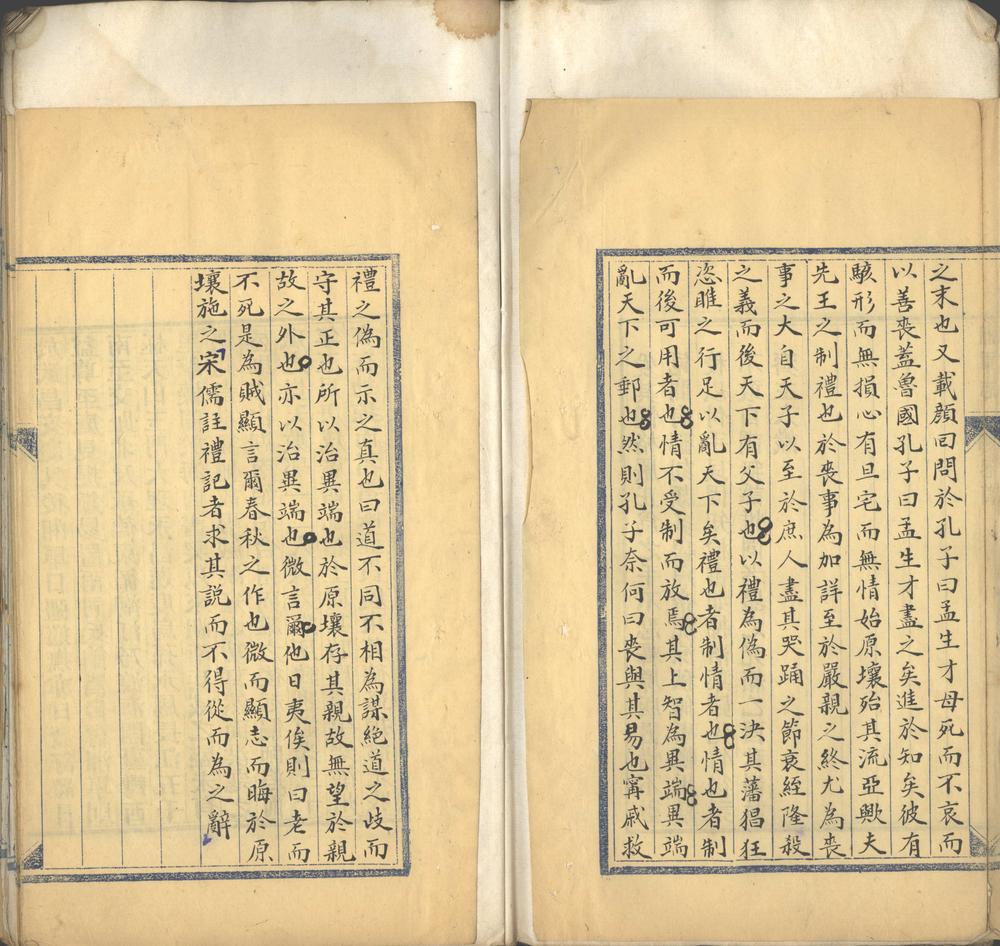 之末也又載顏回問於孔子曰孟生才母死而不哀而
以善喪蓋魯國孔子曰孟生才盡之矣進於知矣彼有
駭形而無損心有旦宅而無情始原壤殆其流亞歟夫
先王之制禮也於喪事為加詳至於嚴親之終尤為喪
事之大自天子以至於庶人盡其哭踊之節衰絰隆殺
之義而後天下有父子也以禮為偽而一決其藩猖狂
恣睢之行足以亂天下矣禮也者制情者也情也者制
而後可用者也情不受制而放焉其上智為異端異端
亂天下之郵也然則孔子奈何曰喪與其易也寧戚救
禮之偽而示之真也曰道不同不相為謀絕道之歧而
守其正也所以治異端也於原壤存其親故無望於親
故之外也亦以治異端也微言爾他日夷俟則曰老而
不死是為賊顯言爾春秋之作也微而顯志而晦於原
壤施之宋儒註禮記者求其說而不得從而為之辭